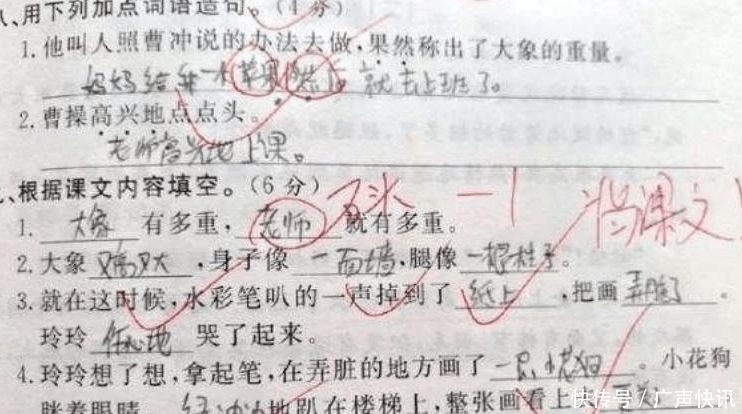 八、用下列加点词语造句。(4分)
1.他叫人照曹冲说的办法去做,果然称出了大象的重量。
妈妈给我一个苹果然后就去上班了。
2.曹操高兴地点点头。
老师高兴地上课。
、根据课文内容填空。(6分) 石头 一1 当课文
1. 大象 有多重, 老师 就有多重。
2.大象 又高又大 ,身子像 一面墙,腿像 一根柱子。
3.就在这时候,水彩笔叭的一声掉到了 纸上 ,把画 弄脏了 。
玲玲 伤心地 哭了起来。
4.玲玲想了想,拿起笔,在弄脏的地方画了 一只小花狗 。小花狗
眯着眼睛, 地趴在楼梯上,整张画看上
快传号/广声快讯